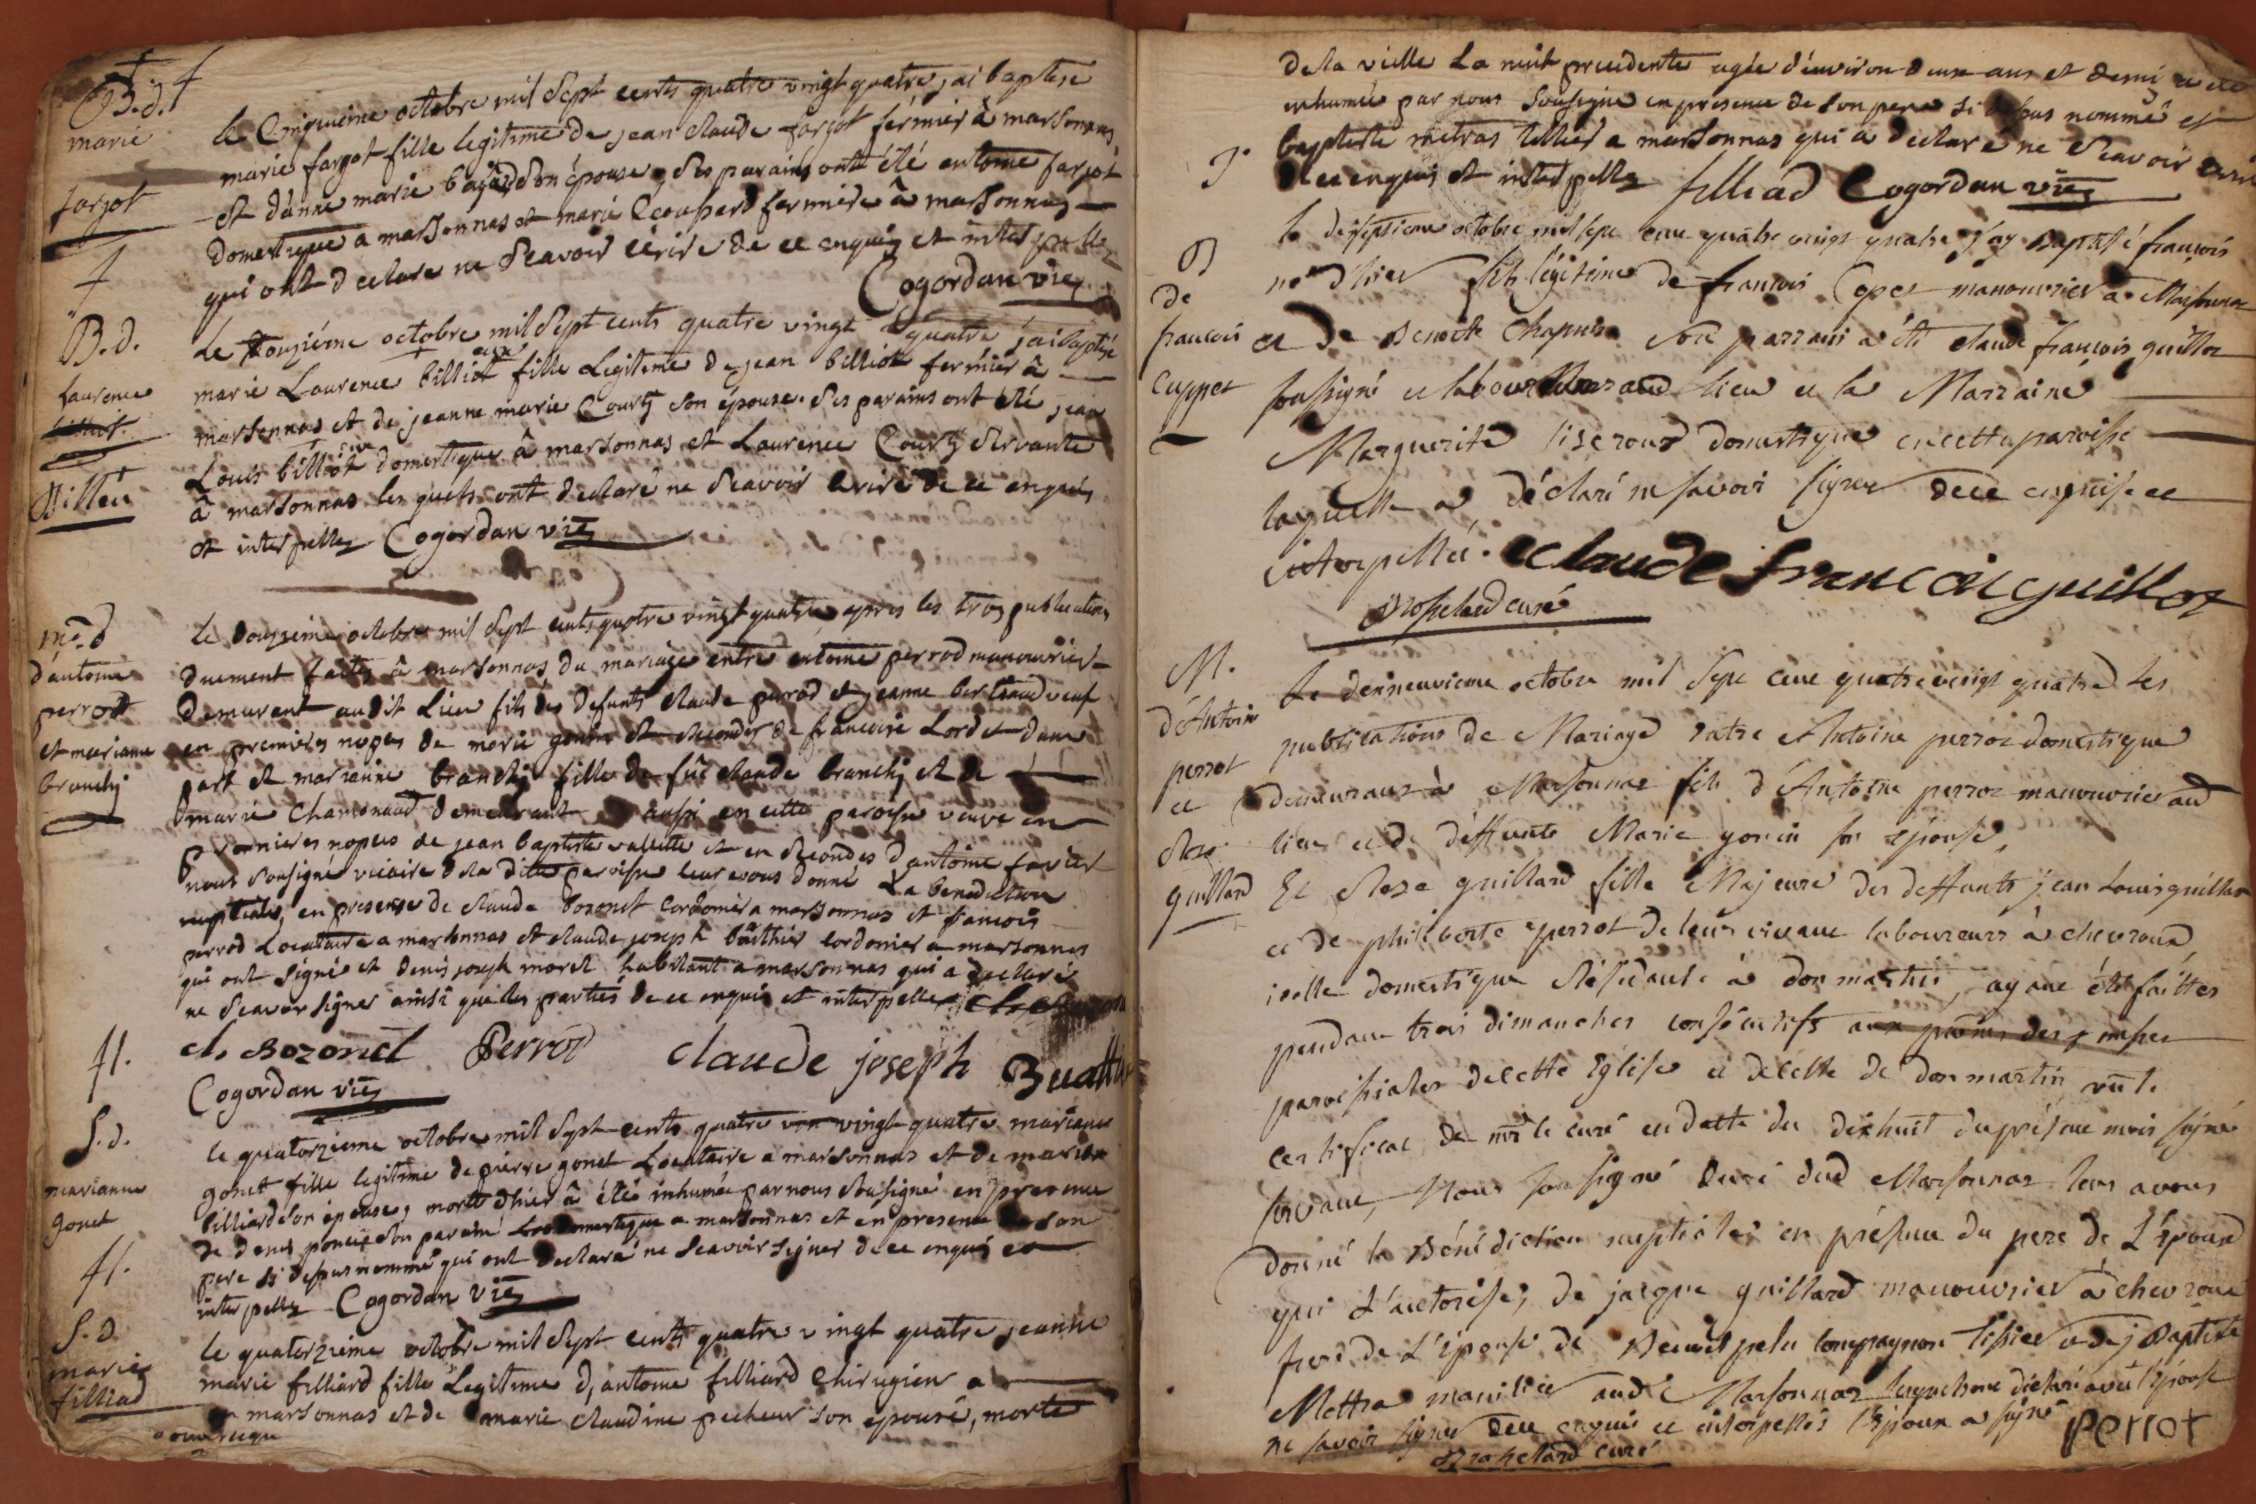 B.d.
marie
farjot
le Cinquieme octobre mil Sept cents quatre vingt quatre, jai baptise
marie farjot fille legitime de jean claude farjot férmier â marsonnas,
et d'anne marie son épouse, Ses parains ont été antoine farjot
domestique a marsonnas et marie fermiere â marsonnas
qui ont declare ne Scavoir écrire de ce enquis et interpellez
Cogordan vic
B.d.
Laurence
Billiet
le octobre mil Sept cents quatre vingt quatre j'ai baptisé
marie Laurence billiot fille Legitime de jean billiot fermier â
marsonnas et de jeanne marie Courtz son épouse. Ses parains ont été jean
Louis billiot domestique â marsonnas et Laurence Courtz Servante
â marsonnas les quels ont declaré ne Scavoir ecrire de ce enquis
et interpellez Cogordan vic
m. d
d'antoine
perrod
et marianne
branchy
le douzieme octobre mil Sept cents quatre vingt quatre, apres les trois publications
duement faites â marsonnas, du mariage entre antoine perrod manouvrier
demeurant audit Lieu fils des defunts claude perrod et jeanne bertrand veuf
en premieres nopces de marie gonin et secondes de francoise Lordet dune
part et marianne branchy fille de fût claude branchy et de
marie Chamonaud demeurant aussi en cette paroisse veuve en
premieres nopces de jean baptiste vallette et en Secondes d'antoine favier
nous Sousigné vicaire de la dite paroisse leur avons donné La benediction
nuptiale, en presence de claude bozonet cordonier a marsonnas et francois
perrod Locataire a marsonnas et claude joseph cordonier a marsonnas
qui ont signé et denis joseph morel habitant a marsonnas qui a declaré
ne Scavoir signer ainsi que les parties de ce enquis et interpellez
cl. Bozonet Perrod claude joseph Buathier
Cogordan vic
S.d.
marianne
gonet
le quatorzieme octobre mil Sept cents quatre vingt quatre marianne
gonet fille legitime de pierre gonet Locataire a marsonnas et de marie
billiard son épouse, morte d'hier â été inhumée par nous Sousigné en presence
de denis poncet son parain domestique a marsonnas et en presence de son
pere si dessus nommé qui ont declaré ne Scavoir signer de ce enquis et
interpellez Cogordan vic
S.d
marie
filliad
le quatorzieme octobre mil Sept cents quatre vingt quatre jeanne
marie filliard fille Legitime d'antoine filliard Chirugien a
marsonnas et de marie claudine pecheur son épouse, morte
de la veille La nuit precedente agée d'environ deux ans et demi a été
inhumée par nous Sousigné en presence de son pere si dessus nommé et
baptiste metras tellier a marsonnas qui a declaré ne Scavoir ecrire
de ce enquis et interpellez filliad Cogordan vic
B
de
francois
Cuppet
le dixseptieme octobre mil sept cent quatre vingt quatre j'ay Baptisé francois
né d'hier fils légitime de francois Copet manouvrier a Marsonnas
et de Benoite Chapuis Son parrain a été claude francois guillot
soussigné laboureur aud lieu et la Marraine
Marguerite domestique en cette paroisse
laquelle a déclaré ne savoir signer de ce enquise et
interpellée. claude francois guillot
curé
M.
d'Antoine
perrot
et
Roze
guillard
Le dixneuvieme octobre mil Sept cent quatre vingt quatre les
publications de Mariage entre Antoine perrot domestique
demeurant à Marsonnas fils d'Antoine perrot manouvrier aud
lieu et de déffunte Marie gonin son épouse,
Et Roze guillard fille Majeure des deffunts jean Louis guillard
et de philiberte perrot de leur vivant laboureurs à chevroux
icelle domestique Résidante à don martin, ayant été faittes
pendant trois dimanches consécutifs aux prônes des messes
paroissiales de cette Eglise et de celle de don martin, vû le
certificat de mr le curé en datte du dixhuit du présent mois signé
servant, Nous soussigné Curé dud Marsonnas leur avons
donné la Bénédiction nuptiale, en présence du pere de L'époux
qui L'auctorise, de jacque guillard manouvrier à chevroux
frere de L'épouse de Benoit pelu compagnon tissier et de j Baptiste
Mettra aud Marsonnas lesquels ont déclaré avec l'épouse
ne savoir signer de ce enquis et interpellés l'époux a signé perrot
curé